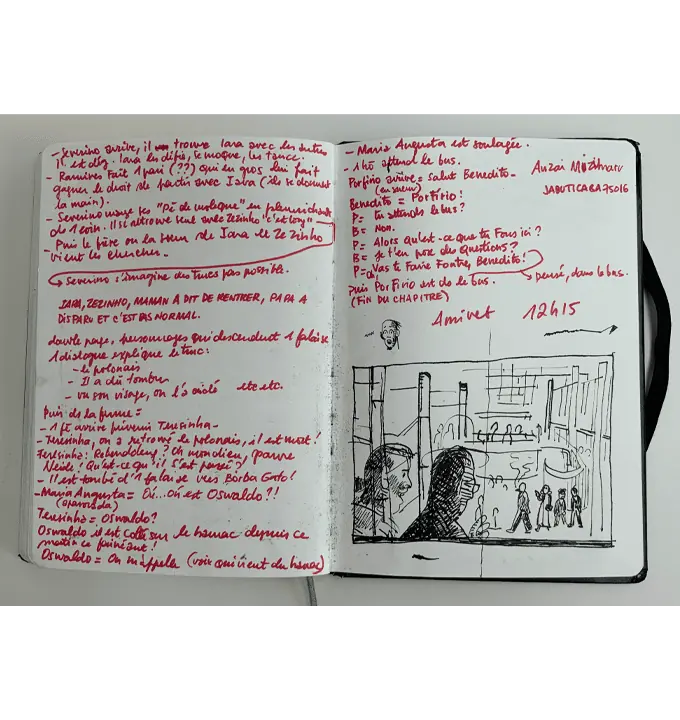 - Severino arrive, il trouve Iara avec les autres
Il est dbg. Iara les défie, se moque, les tance.
- Ramires fait 1 pari (??) qui en gros lui fait
gagner le droit de partir avec Iara (ils se donnent
la main).
- Severino mange ses "Pé de moleque" en pleurnichant
ds 1 coin. Il se retrouve seul avec Zezinho "c'est long" -
- Puis le père ou la sœur de Iara et Zezinho
vient les chercher.
↳ Severino s'imagine des trucs pas possible.
IARA, ZEZINHO, MAMAN A DIT DE RENTRER, PAPA A
DISPARU ET C'EST PAS NORMAL.
double page, personnages qui descendent 1 falaise
1 dialogue explique le truc:
- le polonais
- Il a dû tomber
- vu son visage, on l'a aidé etc etc.
Puis ds la ferme =
- 1 arrive prévenir Teresinha -
- Teresinha, on a retrouvé le polonais, il est mort!
Teresinha: ? Oh mon dieu, pauvre
Neide! Qu'est-ce qu'il s'est passé?
- Il est tombé d'1 falaise vers Borba Gato!
- Maria Augusta = Où... où est Oswaldo?!!
(apavorada)
Teresinha = Oswaldo?
Oswaldo il est collé sur le hamac depuis ce
matin ce fainéant!
Oswaldo = On m'appelle (voix qui vient du hamac)
- Maria Augusta est soulagée.
- 1 attend le bus.
Porfirio arrive = salut Benedito -
Benedito = Porfirio!
P= tu attends le bus?
B= Non.
P= Alors qu'est-ce que tu fous ici?
B= Je t'en pose des questions?
P= Vas te faire foutre, Benedito!
→ pensé, dans le bus.
puis Porfirio est ds le bus.
(FIN DU CHAPITRE)
Anzai Mizúmaru
JABUTICABA75016
Amivet 12H15